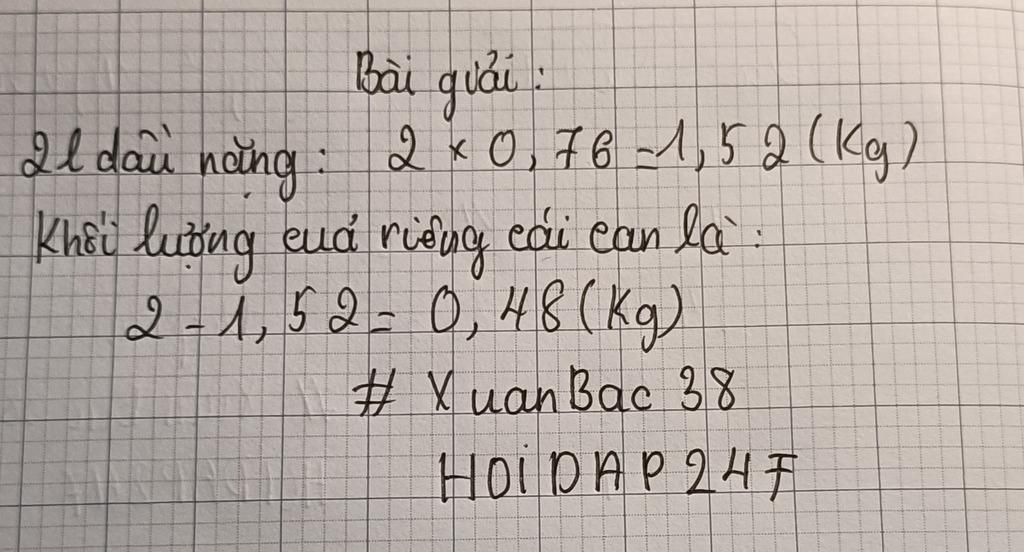 Bài guải:
2l dầu nặng: 2 × 0,76 = 1,52 (Kg)
Khối lượng cuả riêng cái can là:
2 - 1,52 = 0,48 (Kg)
# XuanBac 38
HOiDAP247